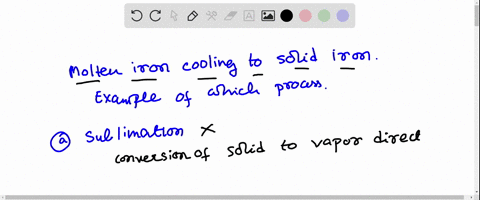 Molten iron cooling to solid iron.
Example of which process.
(a) Sublimation ×
conversion of solid to vapor direct